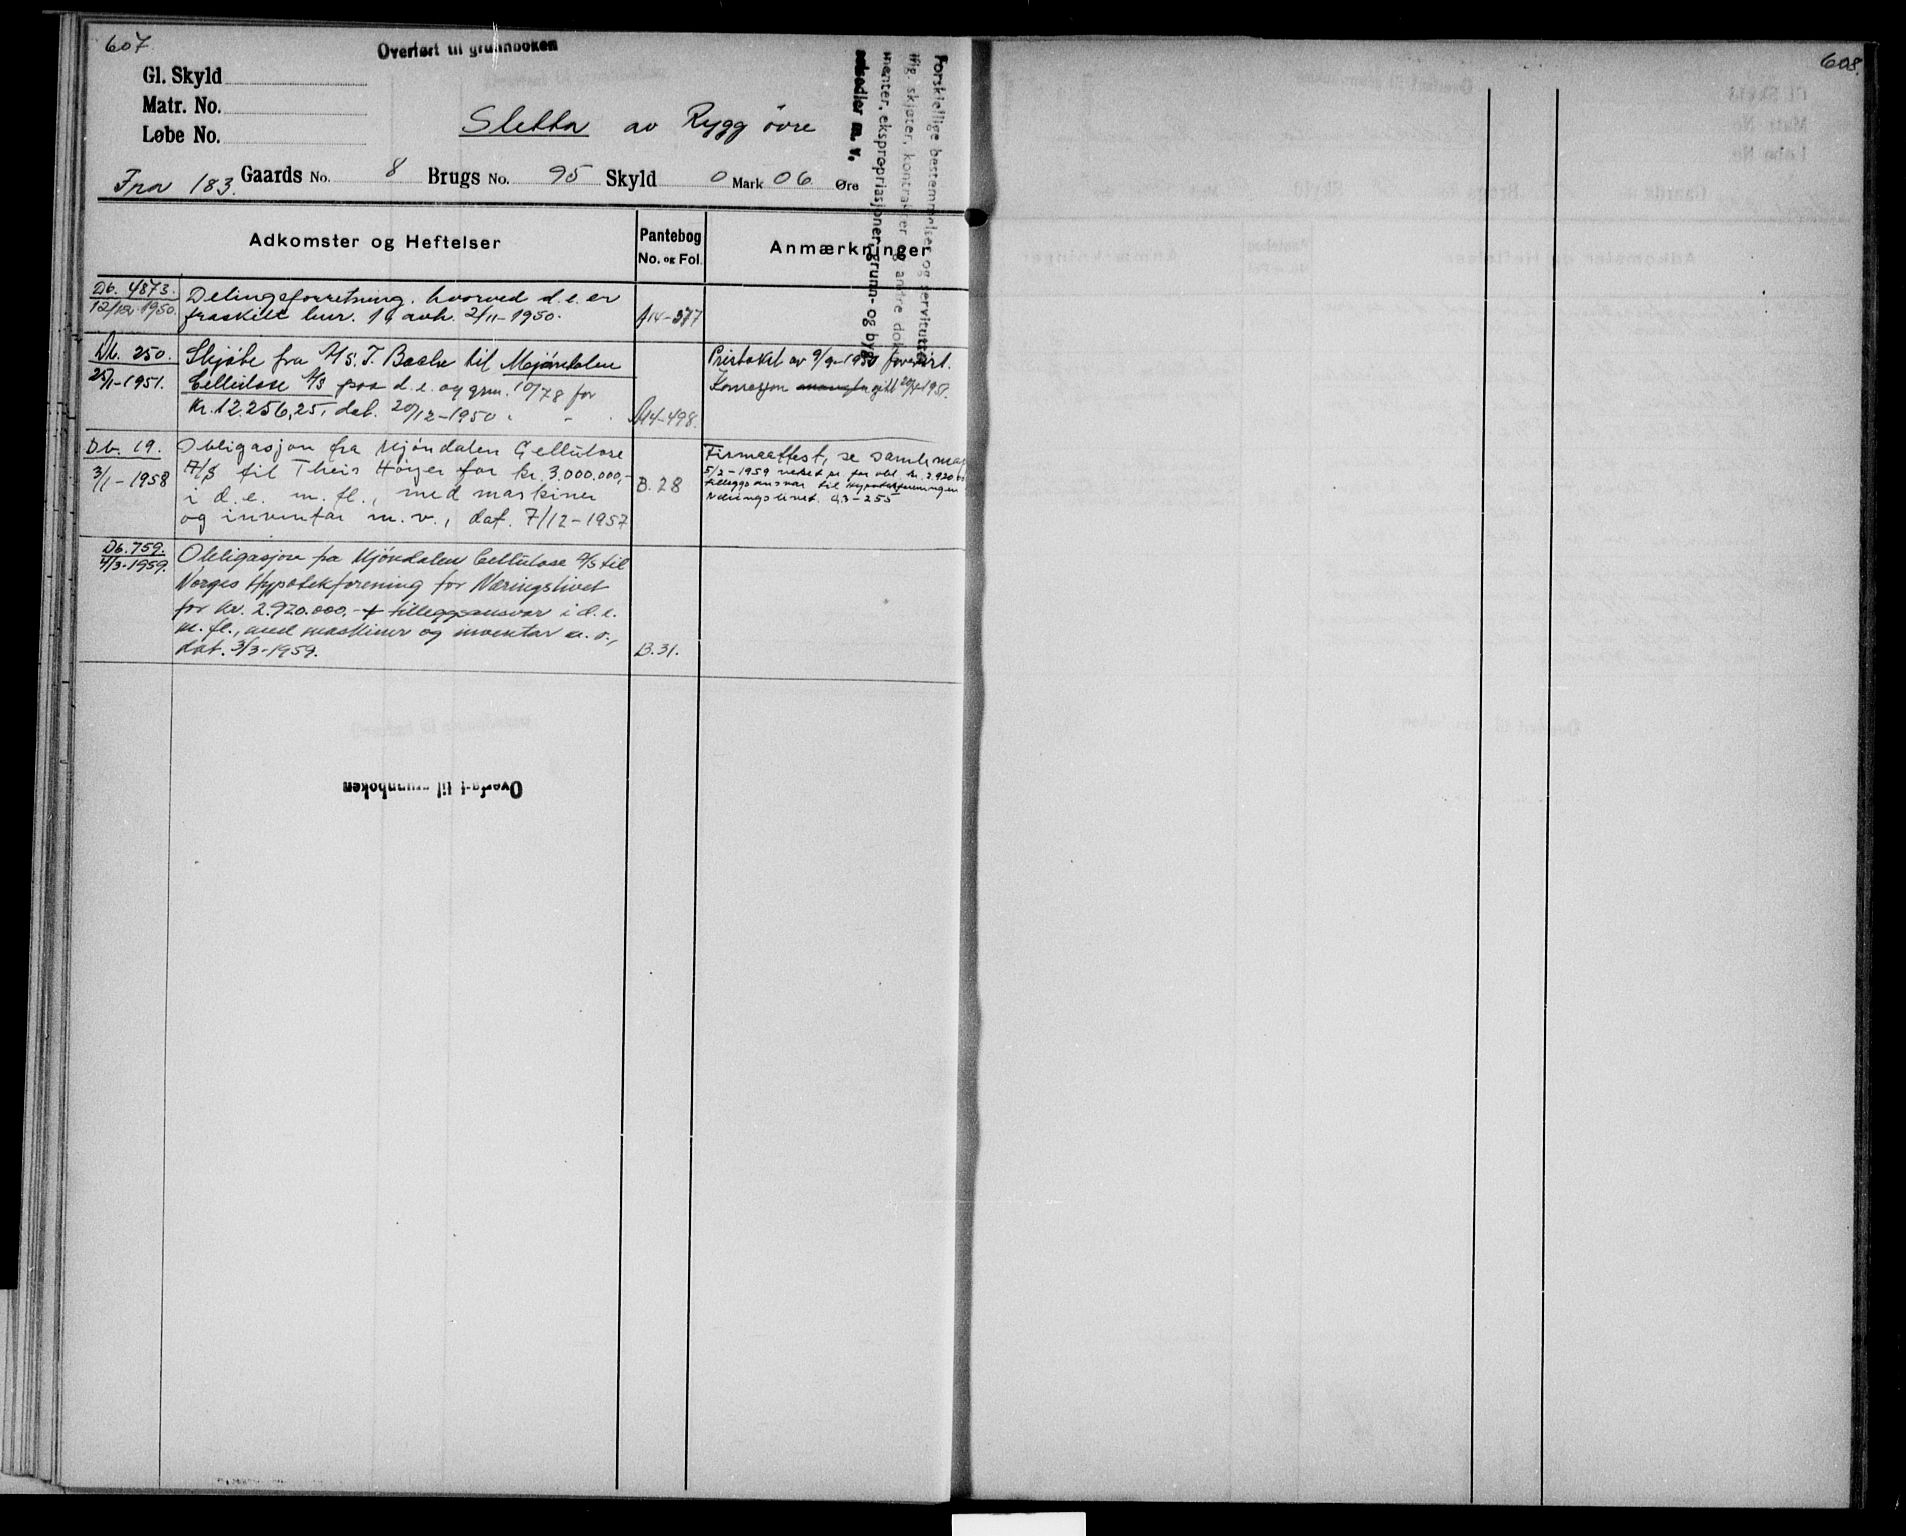 607.
Overført til grunnboken
Gl. Skyld
Matr. No.
Løbe No.
Sletta av Rygg øvre
Fra 183.
Gaards No. 8 Brugs No. 95 Skyld 0 Mark 06 Øre
Forskjellige bestemmelser og servitutter
iflg. skjøter, kontrakter og andre dok
menter, ekspropriasjoner, grunn- og byg
selsedler m. v.
Adkomster og Heftelser
Pantebog
No. og Fol.
Anmærkninger
Db. 4873.
12/12-1950.
Delingsforretning, hvorved d. e. er
fraskilt bnr. 1, avh. 2/11-1950.
A14-377
Db. 250.
25/1-1951.
Skjøte fra A/S. I. Bache til Mjøndalen
Cellulose A/S paa d. e. og gnr. 10/78 for
kr. 12.256,25, dat. 20/12-1950.
A14-498.
Pristakst av 9/9-1950 forevist.
Konsesjon gitt 20/4-1951.
Db. 19.
3/1-1958
Obligasjon fra Mjøndalen Cellulose
A/S til Theis Høyer for kr. 3.000.000,-
i d. e. m. fl., med maskiner
og inventar m. v., dat. 7/12-1957
B. 28
Firmaattest, se samlemap
5/2-1959 veket pr. for obl. kr. 2.920.000
tilleggsansvar til Hypotekforeningen
Næringslivet. A3-255
Db. 759.
4/3-1959.
Obligasjon fra Mjøndalen Cellulose A/S til
Norges Hypotekforening for Næringslivet
for kr. 2.920.000.- + tilleggsansvar i d. e.
m. fl., med maskiner og inventar m. v.,
dat. 3/3-1959.
B. 31.
Overført til grunnboken
608.